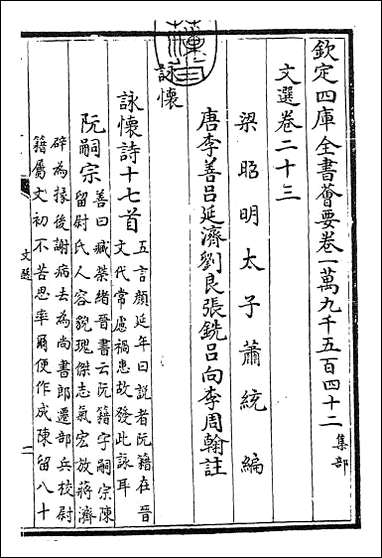 欽定四庫全書薈要卷一萬九千五百四十二集部
文選卷二十三
梁昭明太子蕭統編
唐李善呂延濟劉良張銑呂向李周翰註
詠懷
詠懷詩十七首五言顔延年曰說者阮籍在晉
文代常慮禍患故發此詠耳
阮嗣宗善曰臧榮緒晉書云阮籍字嗣宗陳
留尉氏人容貌瑰傑志氣宏放蔣濟
辟為掾後謝病去為尚書郎遷部兵校尉
籍屬文初不苦思率爾便作成陳留八十
文選